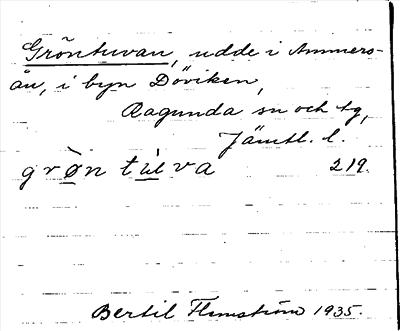 Gröntuvan, udde i Ammers-
ån, i byn Döviken,
Ragunda sn och tg,
Jämtl. l.
grø̀n tùva 219.
Bertil Flemström 1935.